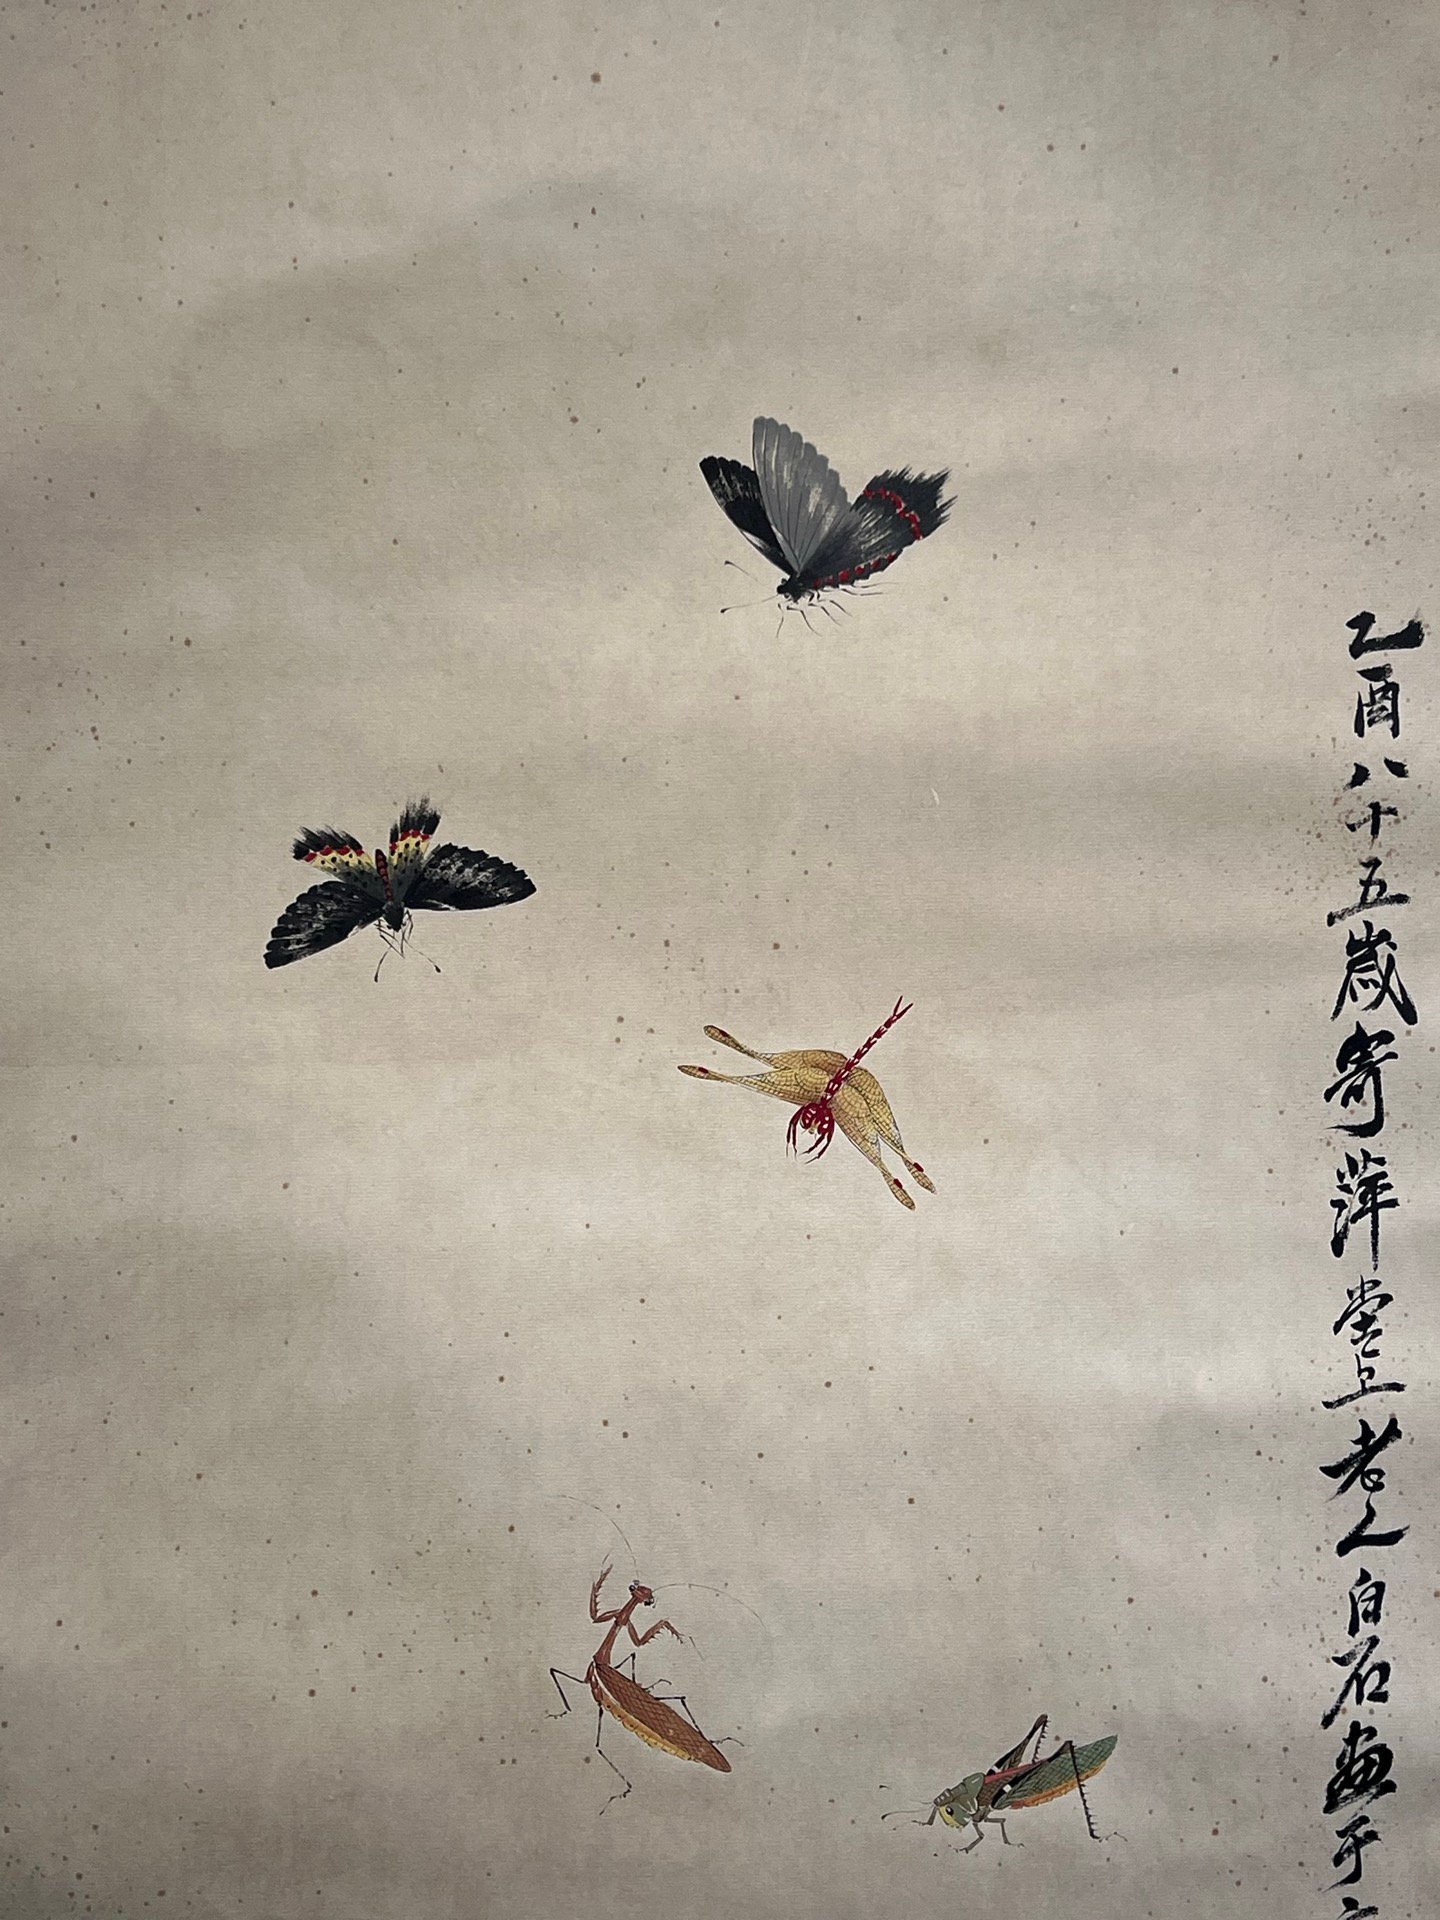 乙酉八十五歲寄萍堂上老人白石畫于